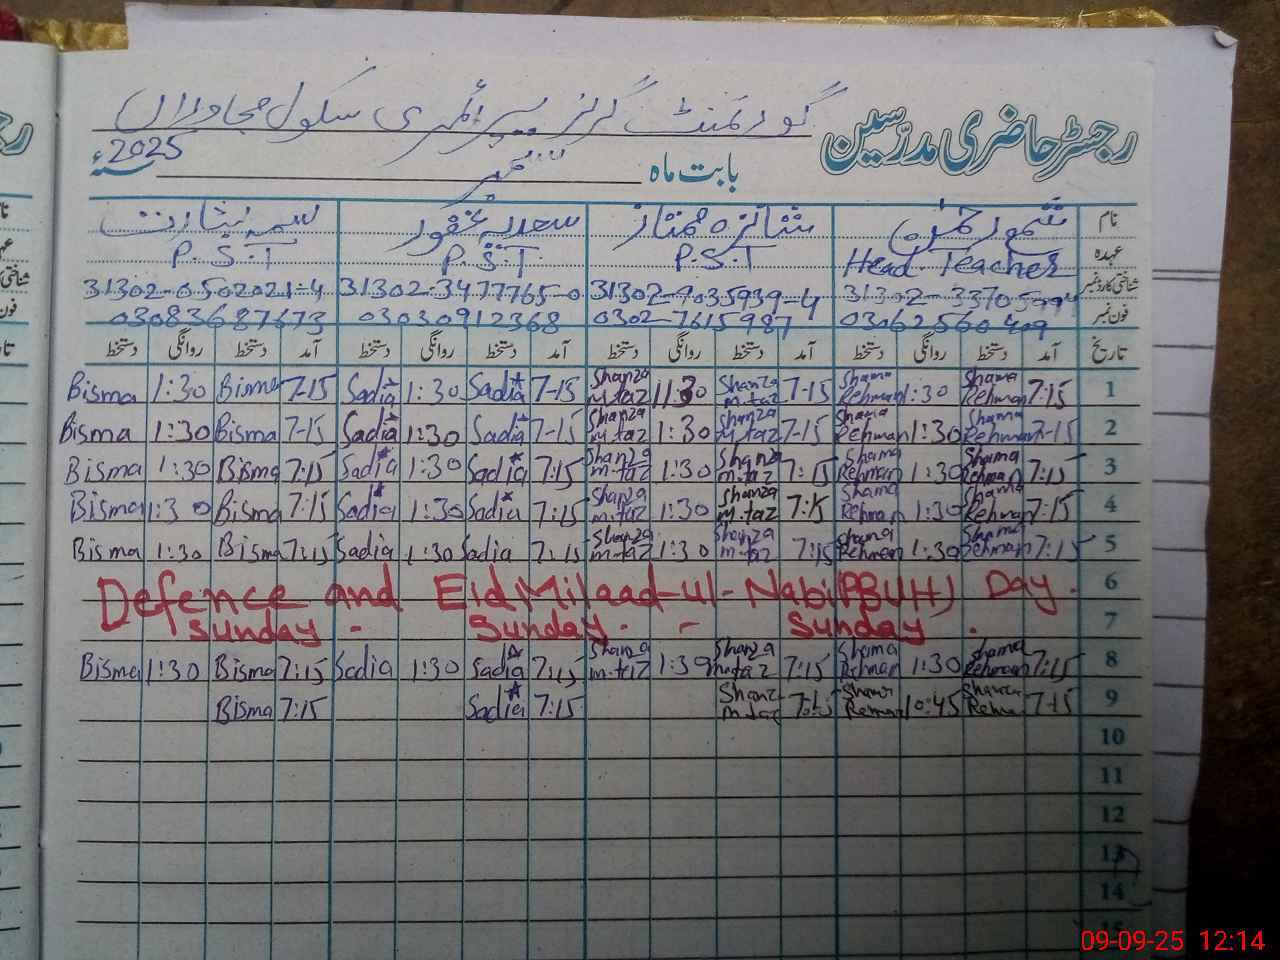 رجسٹر حاضری مدرسین گورنمنٹ گرلز پرائمری سکول مجاوراں
بابت ماہ ستمبر سنہ 2025ء
نام شمع رحمٰن شانزہ ممتاز سعدیہ غفور بسمہ بشارت
عہدہ Head Teacher P.S.T P.S.T P.S.T
شناختی کارڈ نمبر 31302-9035939-4 31302-3477765-0 31302-0502021-4
فون نمبر 03062560409 0302-7615987 03030912368 03083687673
تاریخ آمد دستخط روانگی دستخط آمد دستخط روانگی دستخط آمد دستخط روانگی دستخط آمد دستخط روانگی دستخط
1 7:15 Shama Rehman 1:30 Shama Rehman 7-15 Shanza m.taz 1:30 Shanza m.taz 7-15 Sadia 1:30 Sadia 7-15 Bisma 1:30 Bisma
2 7-15 Shama Rehman 1:30 Shama Rehman 7-15 Shanza m.taz 1:30 Shanza m.taz 7-15 Sadia 1:30 Sadia 7-15 Bisma 1:30 Bisma
3 7:15 Shama Rehman 1:30 Shama Rehman 7:15 Shanza m.taz 1:30 Shanza m.taz 7:15 Sadia 1:30 Sadia 7:15 Bisma 1:30 Bisma
4 7:15 Shama Rehman 1:30 Shama Rehman 7:15 Shanza m.taz 1:30 Shanza m.taz 7:15 Sadia 1:30 Sadia 7:15 Bisma 1:30 Bisma
5 7:15 Shama Rehman 1:30 Shama Rehman 7:15 Shanza m.taz 1:30 Shanza m.taz 7:15 Sadia 1:30 Sadia 7:15 Bisma 1:30 Bisma
6 Defence and Eid Milaad-ul-Nabi (PBUH) Day.
7 Sunday - Sunday. - Sunday.
8 7:15 Shama Rehman 1:30 Shama Rehman 7:15 Shanza m.taz 1:30 Shanza m.taz 7:15 Sadia 1:30 Sadia 7:15 Bisma 1:30 Bisma
9 7-15 Shama Rehman 10:45 Shama Rehman 7:15 Shanza m.taz 7:15 Sadia 7:15 Bisma
10
11
12
13
14
15
09-09-25 12:14